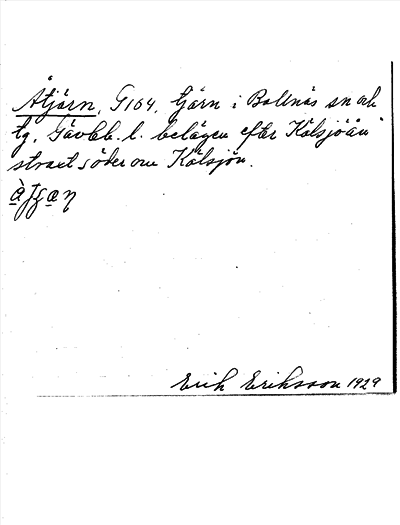 Åtjärn, G104, tjärn i Bollnäs sn och
tg, Gävleb. l. belägen efter Kölsjöån
straxt söder om Kölsjön.
Erik Eriksson 1929